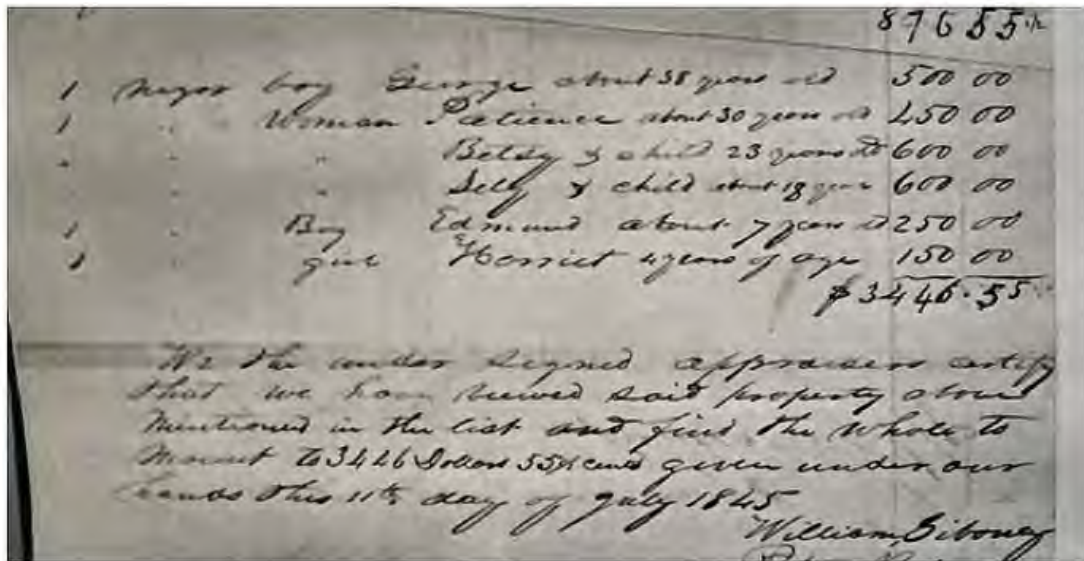 876 55 ½
1 Negro boy George about 38 years old 500 00
1 " " Woman Patience about 30 years old 450 00
" " " Betsy & child 23 years old 600 00
" " Sely & child about 18 years 600 00
1 " Boy Edmund about 7 years old 250 00
1 " girl Harriet 4 years of age 150 00
$3446.55
We the under signed appraisers certify
that we have viewed said property above
mentioned in the list and find the whole to
amount to 3446 Dollars 55½ cents given under our
hands this 11th day of July 1845
William Giboney